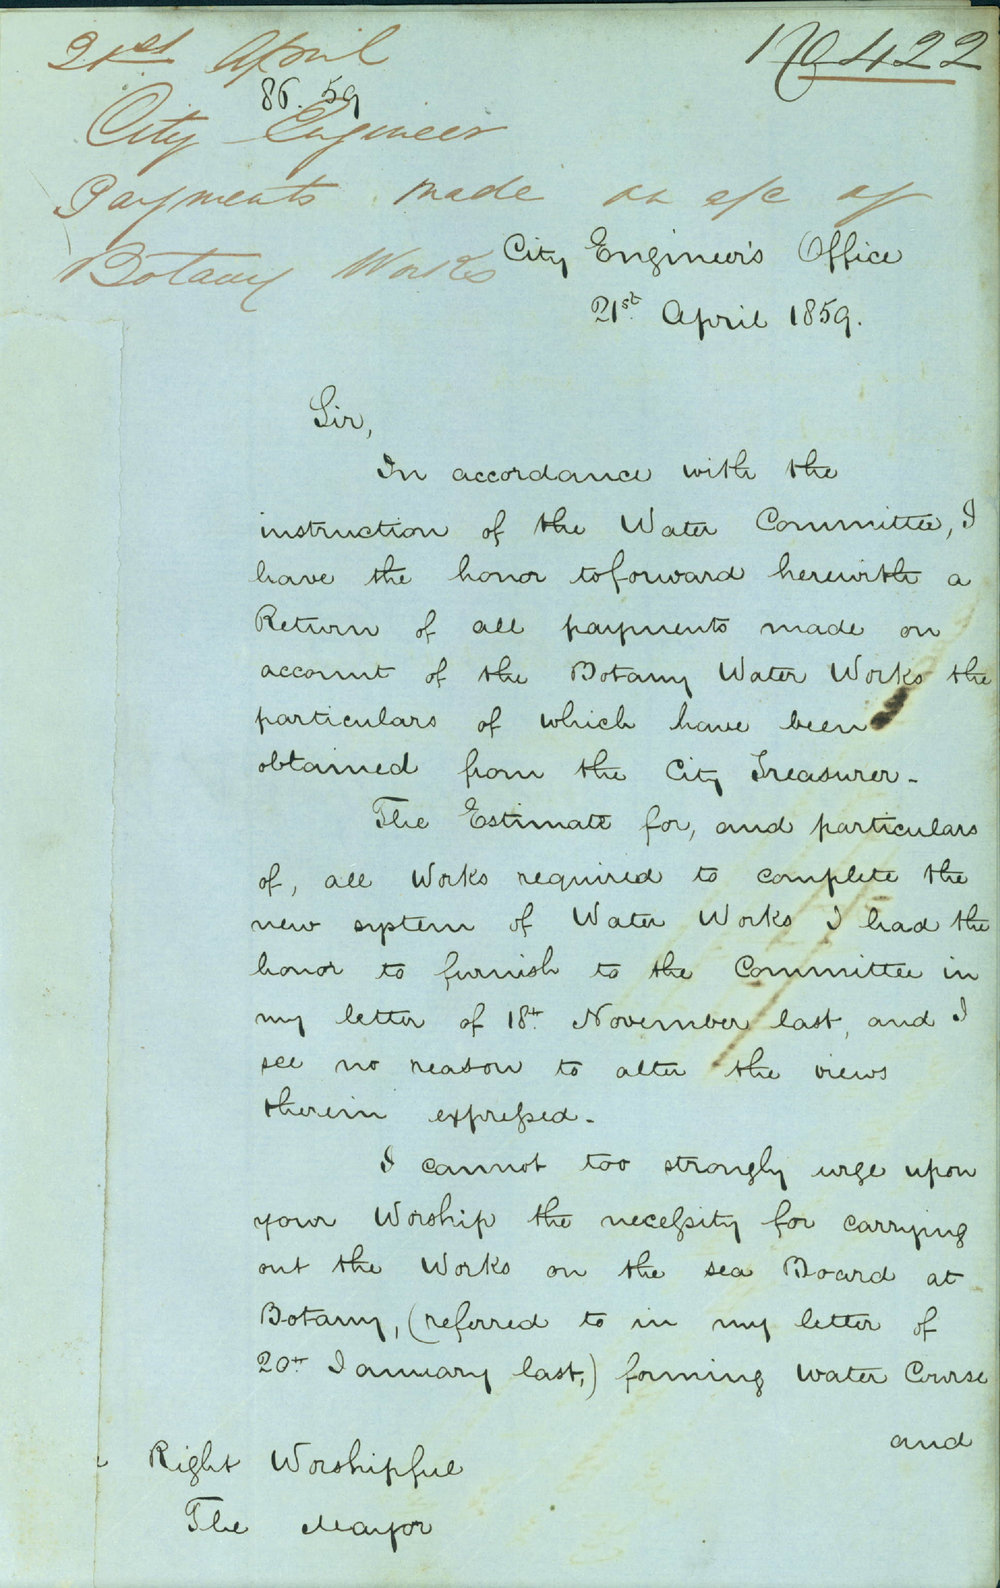 21st April
No 422
86. 59
City Engineer
Payments made on a/c of
Botany Works
City Engineer's Office
21st April 1859.
Sir,
In accordance with the
instruction of the Water Committee, I
have the honor to forward herewith a
Return of all payments made on
account of the Botany Water Works the
particulars of which have been
obtained from the City Treasurer -
The Estimate for, and particulars
of, all Works required to complete the
new system of Water Works I had the
honor to furnish to the Committee in
my letter of 18th November last, and I
see no reason to alter the views
therein expressed -
I cannot too strongly urge upon
your Worship the necessity for carrying
out the Works on the sea Board at
Botany, (referred to in my letter of
20th January last,) forming Water Course
and
Right Worshipful
The Mayor